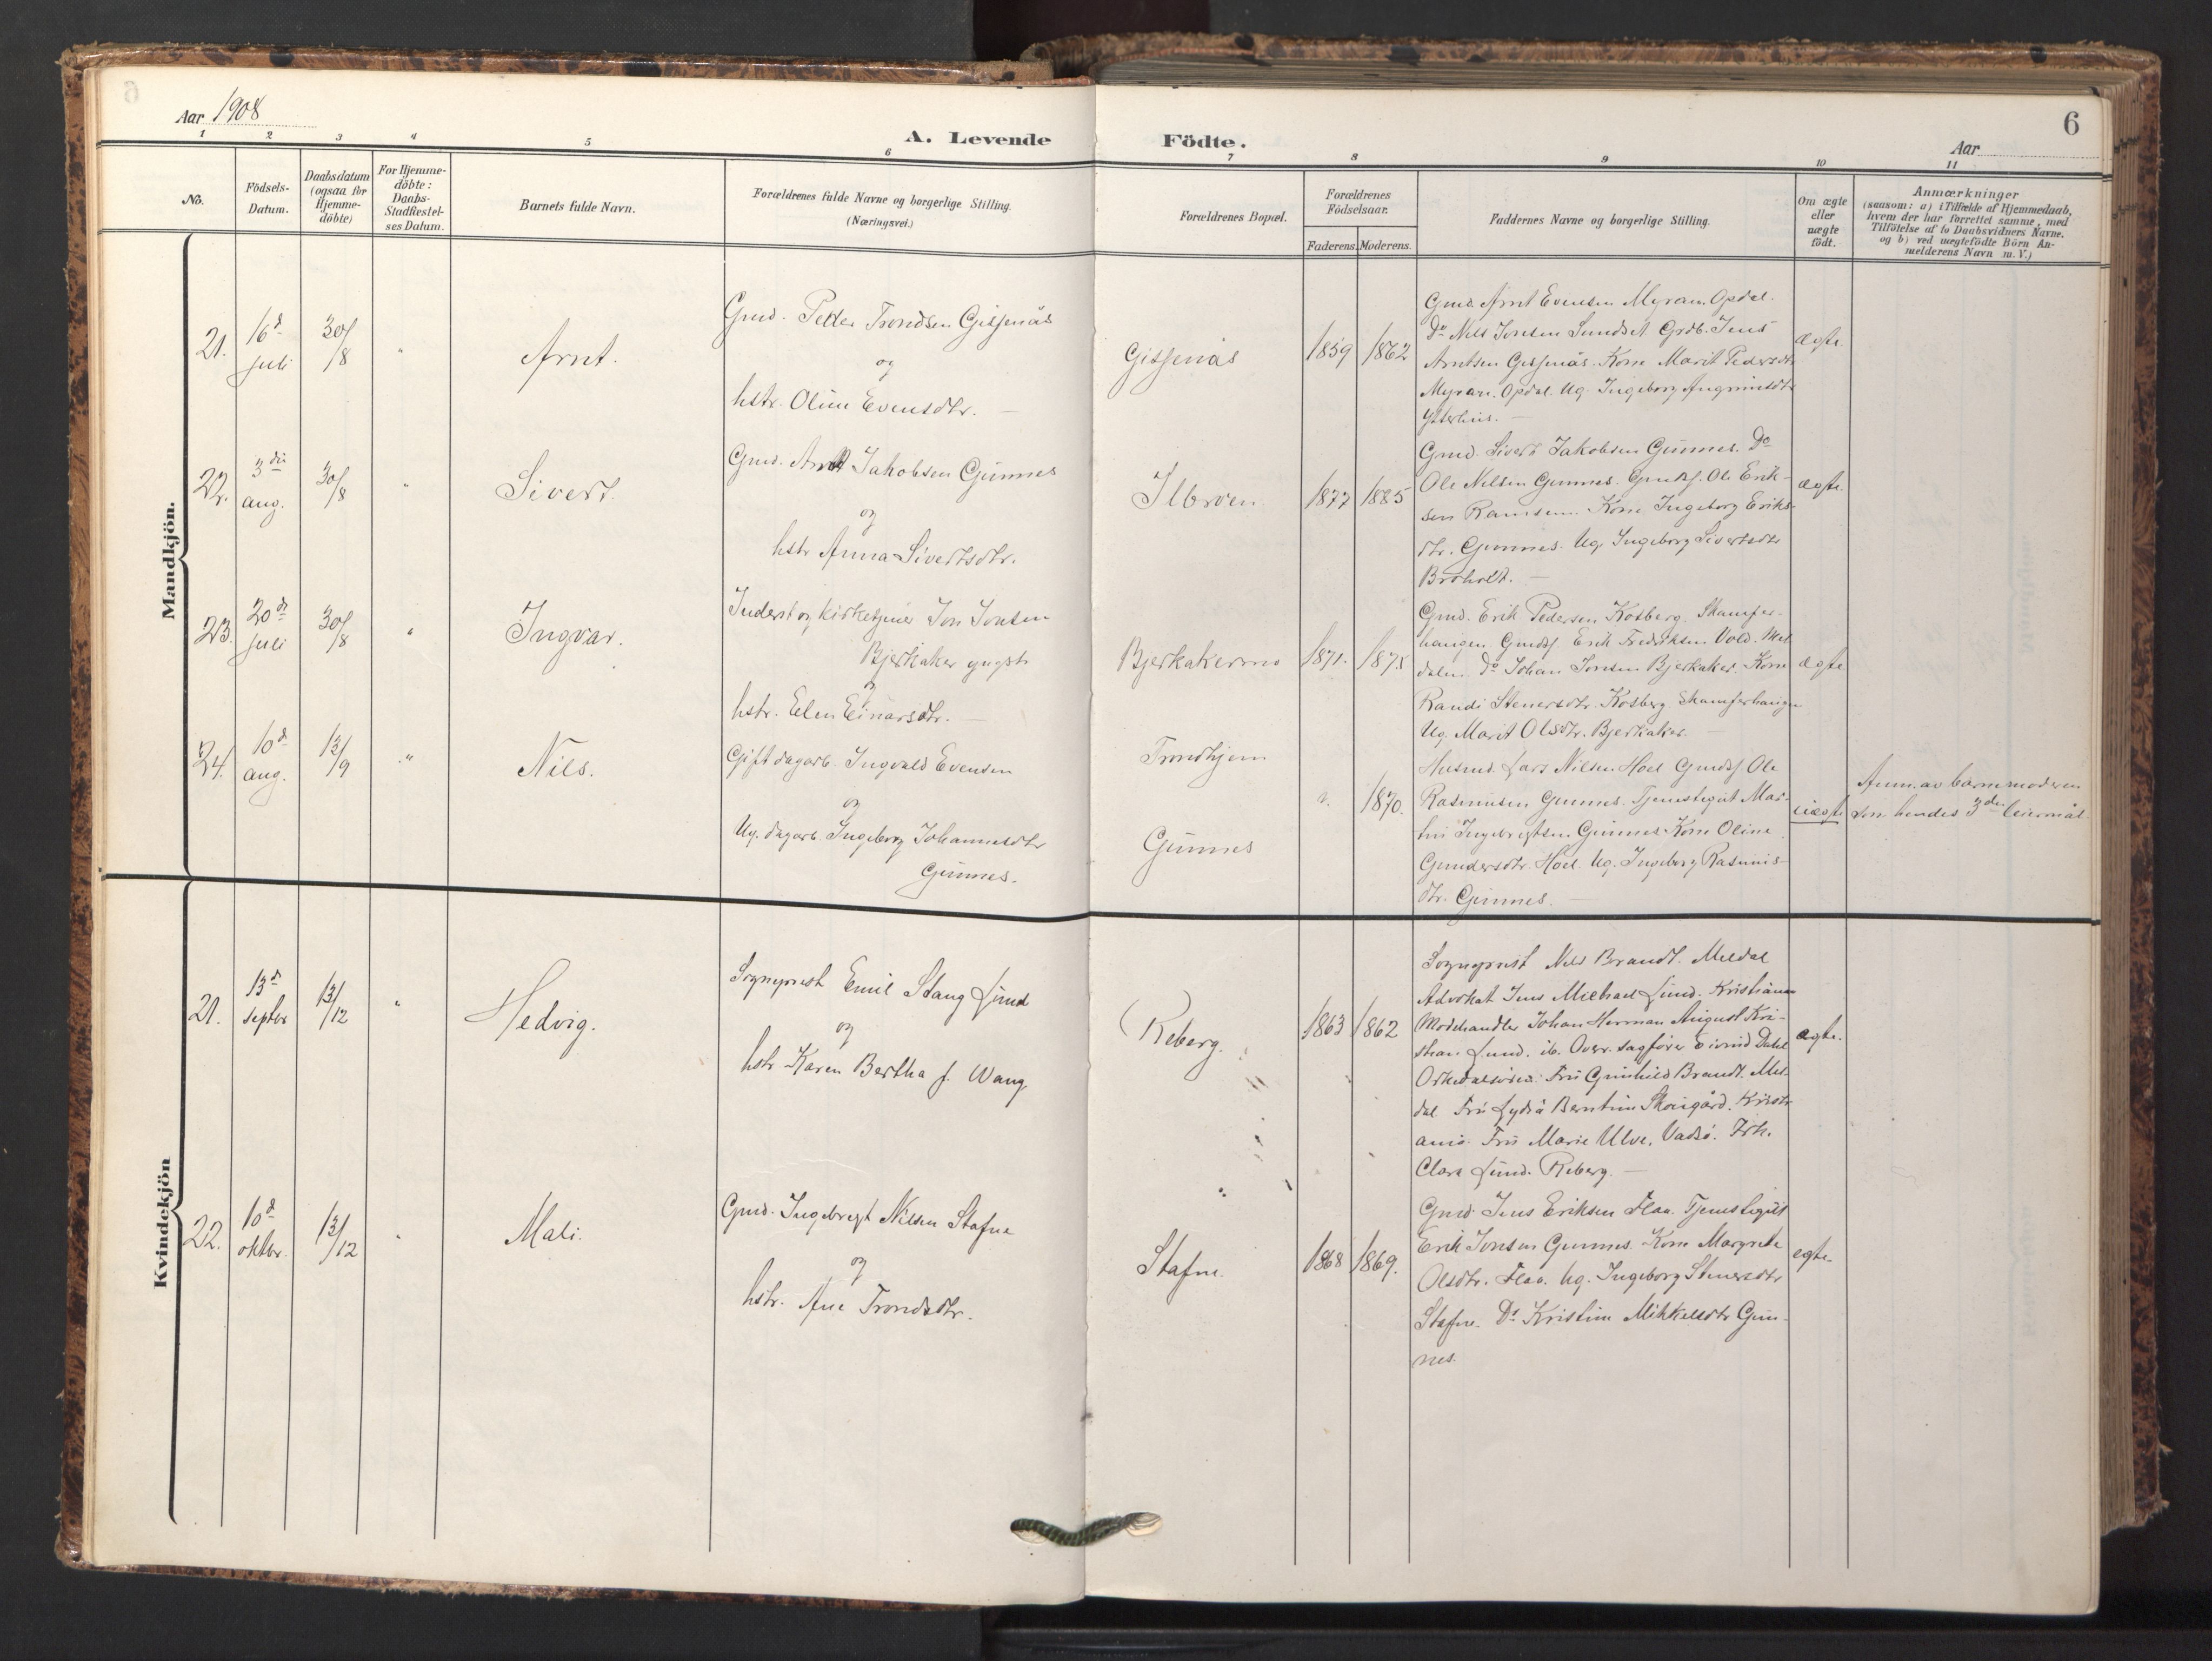 6
Aar 1908
A. Levende Födte.
Aar
1 2 3 4 5 6 7 8 9 10 11
No.
Födsels-
Datum.
Daabsdatum
(ogsaa for
Hjemme-
döbte)
For Hjemme-
döbte:
Daabs-
Stadfæstel-
ses Datum.
Barnets fulde Navn.
Forældrenes fulde Navne og borgerlige Stilling.
(Næringsvei.)
Forældrenes Bopæl.
Forældrenes
Födselsaar.
Faderens. Moderens.
Faddernes Navne og borgerlige Stilling.
Om ægte
eller
uægte
födt.
Anmærkninger
(saasom: a) i Tilfælde af Hjemmedaab,
hvem der har forrettet samme, med
Tilföielse af to Daabsvidners Navne.
og b) ved uægtefödte Börn An-
melderens Navn m. V.)
Mandkjön.
21.
16d
juli
30/8
"
Arnt.
Gmd. Peder Trondsen Gisjenäs
og
hstr. Oline Evensdtr. —
Gisjenäs
1859 1862
Gmd. Arnt Evensen Myran. Opdal.
Do Nils Jonsen Sundset. Grdb. Jens
Arntsen Gisjenäs. Kone Marit Pedersdtr
Myran. Opdal. Ug. Ingeborg Angrimsdtr
Ytterhus. —
ægte
22.
3die
aug.
30/8
"
Sivert.
Gmd. Arnt Jakobsen Gunnes
og
hstr Anna Sivertsdtr.
Ilbroen.
1877 1885
Gmd. Sivert Jakobsen Gunnes. Do
Ole Nilsen Gunnes. Gmds. Ole Erik-
sen Ramsem. Kone Ingeborg Eriks-
dtr. Gunnes. Ug. Ingeborg Sivertsdtr
Broholt. —
ægte
23.
20d
juli
30/8
"
Ingvar.
Inderst og kirketjener Jon Jonsen
Bjerkaker yngst
og
hstr. Elen Einarsdtr. —
Bjerkakermo
1871. 1875
Gmd. Erik Pedersen Kosberg. Skamfer-
haugen Gmds. Erik Fredriksen Vold. Mel-
dalen. Do Johan Jonsen Bjerkaker. Kone
Randi Stenersdtr. Kosberg Skamferhaugen
Ug. Marit Olsdtr. Bjerkaker. —
ægte
24.
10d
aug.
13/9
"
Nils.
Gift dagarb. Ingvald Evensen
og
Ug. dagarb. Ingeborg Johannesdtr
Gunnes.
Trondhjem
Gunnes
1870.
Husmd. Lars Nilsen Hoel Gmds Ole
Rasmusen Gunnes. Tjenestegut Mar-
tin Ingebrigtsen Gunnes. Kone Oline
Gundersdtr. Hoel. Ug. Ingeborg Rasmus-
dtr. Gunnes. —
uægte
Anm. av barnemoderen
som hendes 3die leiermål.
Kvindekjön
21.
13d
septbr
13/12
"
Hedvig.
Sogneprest Emil Stang Lund
og
hstr Karen Bertha f. Wang
Reberg.
1863 1862
Sogneprest Nils Brandt. Meldal
Advokat Jens Michael Lund. Kristiania
Modehandler Johan Herman August Kri-
stian Lund. ib. Overr. sagförer Eivind Dahl
Orkedalsören. Fru Gunhild Brandt. Mel-
dal. Fru Lydia Berntine Skougård. Kristi-
ania. Fru Marie Ulve, Vadsö. Frk.
Clara Lund. Reberg. —
ægte.
22.
10d
oktbr.
13/12
"
Mali.
Gmd. Ingebrigt Nilsen Stafne
og
hstr. Ane Trondsdtr.
Stafne.
1868 1869.
Gmd. Jens Eriksen Flaa. Tjenestegut
Erik Jonsen Gunnes. Kone Margrete
Olsdtr. Flaa. Ug. Ingeborg Stenersdtr
Stafne. Do Kristine Mikkelsdtr Gun-
nes.
egte.